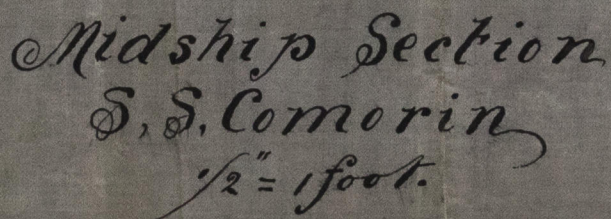 Midship Section
S,S,Comorin
1/2" = 1 foot.